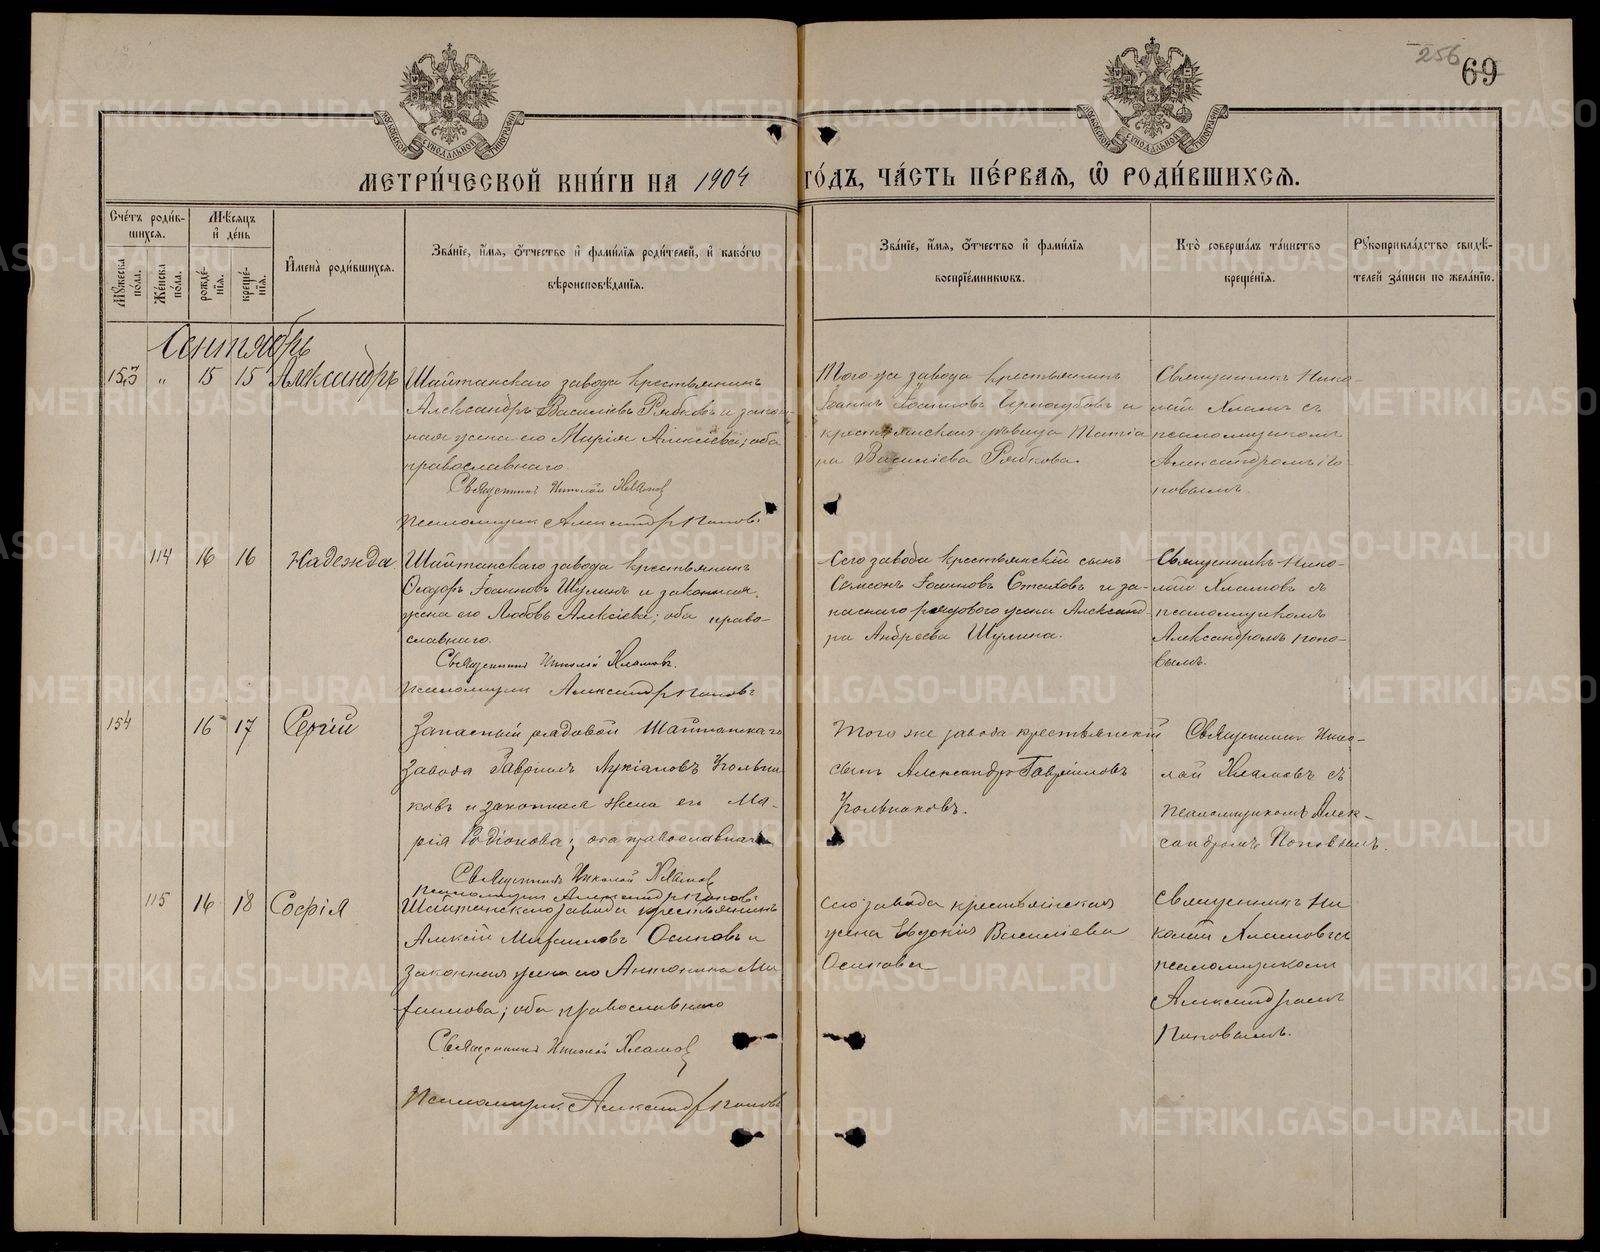 256
69
МОСКОВСКОЙ СУНОДАЛЬНОЙ ТИПОГРАФІИ
МОСКОВСКОЙ СУНОДАЛЬНОЙ ТИПОГРАФІИ
МЕТРИ́ЧЕСКОЙ КНИ́ГИ НА 1904 ГО́ДЪ, ЧА́СТЬ ПЕ́РВАЯ, Ѡ РОДИ́ВШИХСЯ.
Сче́тъ роди́в-
шихся.
Мѣ́сяцъ
и҆ де́нь
Мꙋ́жеска
по́ла.
Же́нска
по́ла.
рожде́-
нїя.
креще́-
нїя.
И҆мена̀ роди́вшихся.
Зва́нїе, и҆́мя, ѻ҆́тчество и҆ фами́лїя роди́телей, и҆ како́гѡ
вѣроисповѣ́данїя.
Зва́нїе, и҆́мя, ѻ҆́тчество и҆ фами́лїя
воспрїе́мниковъ.
Кто̀ соверша́лъ та́инство
креще́нїя.
Рꙋкоприкла́дство свидѣ́-
телей за́писи по жела́нїю.
Сентябрь
153 " 15 15 Александръ
Шайтанскаго завода крестьянинъ
Александръ Васильевъ Рябковъ и закон-
ная жена его Марія Алексѣева; оба
православнаго
Священникъ Николай Хламовъ
Псаломщик Александръ Поповъ
Того же завода крестьянинъ
Іоаннъ Іоанновъ и
крестьянская дѣвица
Василіева Рябкова.
Священникъ Нико-
лай Хламъ съ
псаломщикомъ
Александромъ По-
повымъ.
114 16 16 Надежда
Шайтанскаго завода крестьянинъ
Ѳеодоръ Іоанновъ Шулинъ и законная
жена его Любовь Алексѣева; оба право-
славнаго.
Священникъ Николай Хламовъ.
Псаломщик Александръ Поповъ
Сего завода крестьянскій сынъ
Самсонъ Іоанновъ Стаховъ и за-
паснаго рядового жена Александ-
ра Андреева Шулина.
Священникъ Нико-
лай Хламовъ съ
псаломщикомъ
Александромъ Попо-
вымъ.
154 16 17 Сергій
Запасный рядовой Шайтанскаго
завода Гавріилъ Лукіановъ Угольни-
ковъ и законная жена его Ма-
рія Родіонова; оба православнаго
Священникъ Николай Хламовъ
Псаломщик Александръ Поповъ
Того же завода крестьянскій
сынъ Александръ Гавріиловъ
Угольниковъ.
Священникъ Нико-
лай Хламовъ съ
псаломщикомъ Алек-
сандромъ Поповымъ.
115 16 18 Софія
Шайтанскаго завода крестьянинъ
Алексій Осиповъ и
законная жена его Антонина
оба православнаго
Священникъ Николай Хламовъ
Псаломщик Александръ Поповъ
Сего завода крестьянская
жена Евдокія Василіева
Осипова
Священникъ Ни-
колай Хламовъ съ
псаломщикомъ
Александромъ
Поповымъ.
METRIKI.GASO-URAL.RU